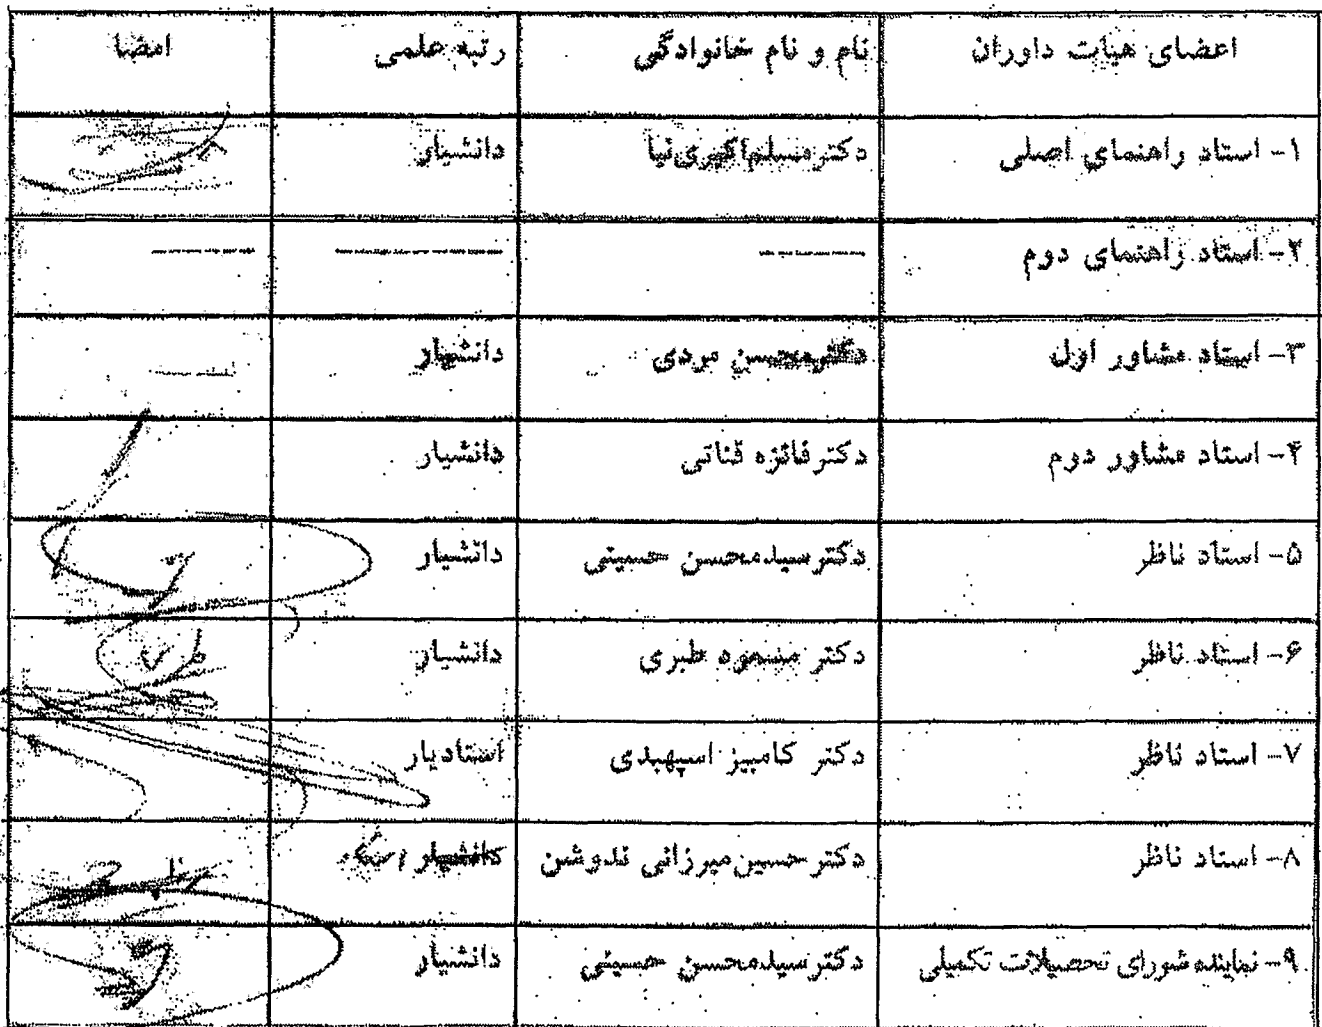 اعضای هیات داوران نام و نام خانوادگی رتبه علمی امضا
۱- استاد راهنمای اصلی دکتر مسلم اکبری‌نیا دانشیار
۲- استاد راهنمای دوم
۳- استاد مشاور اول دکتر محسن مردی دانشیار
۴- استاد مشاور دوم دکتر فائزه قناتی دانشیار
۵- استاد ناظر دکتر سید محسن حسینی دانشیار
۶- استاد ناظر دکتر مسعود طبری دانشیار
۷- استاد ناظر دکتر کامبیز اسپهبدی استادیار
۸- استاد ناظر دکتر حسین میرزائی ندوشن دانشیار
۹- نماینده شورای تحصیلات تکمیلی دکتر سید محسن حسینی دانشیار